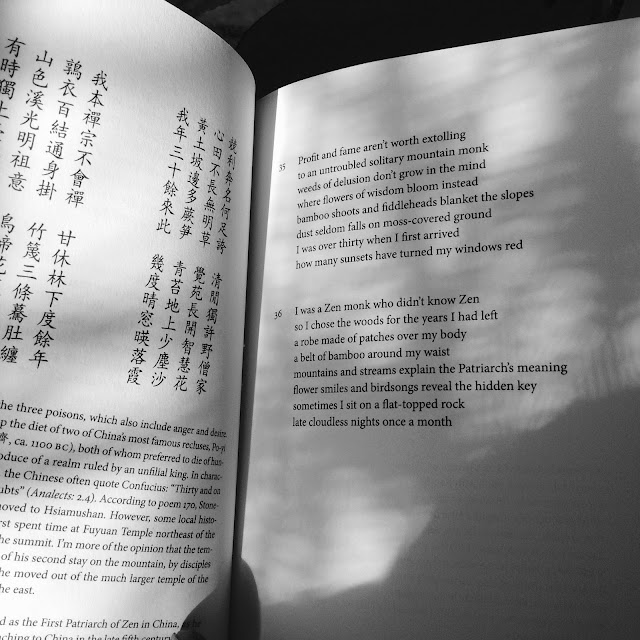 競利奔名何足誇 清閒獨許野僧家
心田不長無明草 覺苑長開智慧花
黃土坡邊多蕨筍 青苔地上少塵沙
我年三十餘來此 幾度晴窓暎落霞
我本禪宗不會禪 甘休林下度餘年
鶉衣百結通身掛 竹篾三條驀肚纏
山色溪光明祖意 鳥啼花
有時獨上
the three poisons, which also include anger and desire.
p the diet of two of China's most famous recluses, Pu-yi
齊, ca. 1100 BC), both of whom preferred to die of hun-
oduce of a realm ruled by an unfilial king. In charac-
, the Chinese often quote Confucius: "Thirty and on
ubts" (Analects: 2.4). According to poem 170, Stone-
moved to Hsiamushan. However, some local histo-
rst spent time at Fuyuan Temple northeast of the
he summit. I'm more of the opinion that the tem-
of his second stay on the mountain, by disciples
he moved out of the much larger temple of the
he east.
d as the First Patriarch of Zen in China,
aching to China in the late fifth century
35 Profit and fame aren't worth extolling
to an untroubled solitary mountain monk
weeds of delusion don't grow in the mind
where flowers of wisdom bloom instead
bamboo shoots and fiddleheads blanket the slopes
dust seldom falls on moss-covered ground
I was over thirty when I first arrived
how many sunsets have turned my windows red
36 I was a Zen monk who didn't know Zen
so I chose the woods for the years I had left
a robe made of patches over my body
a belt of bamboo around my waist
mountains and streams explain the Patriarch's meaning
flower smiles and birdsongs reveal the hidden key
sometimes I sit on a flat-topped rock
late cloudless nights once a month